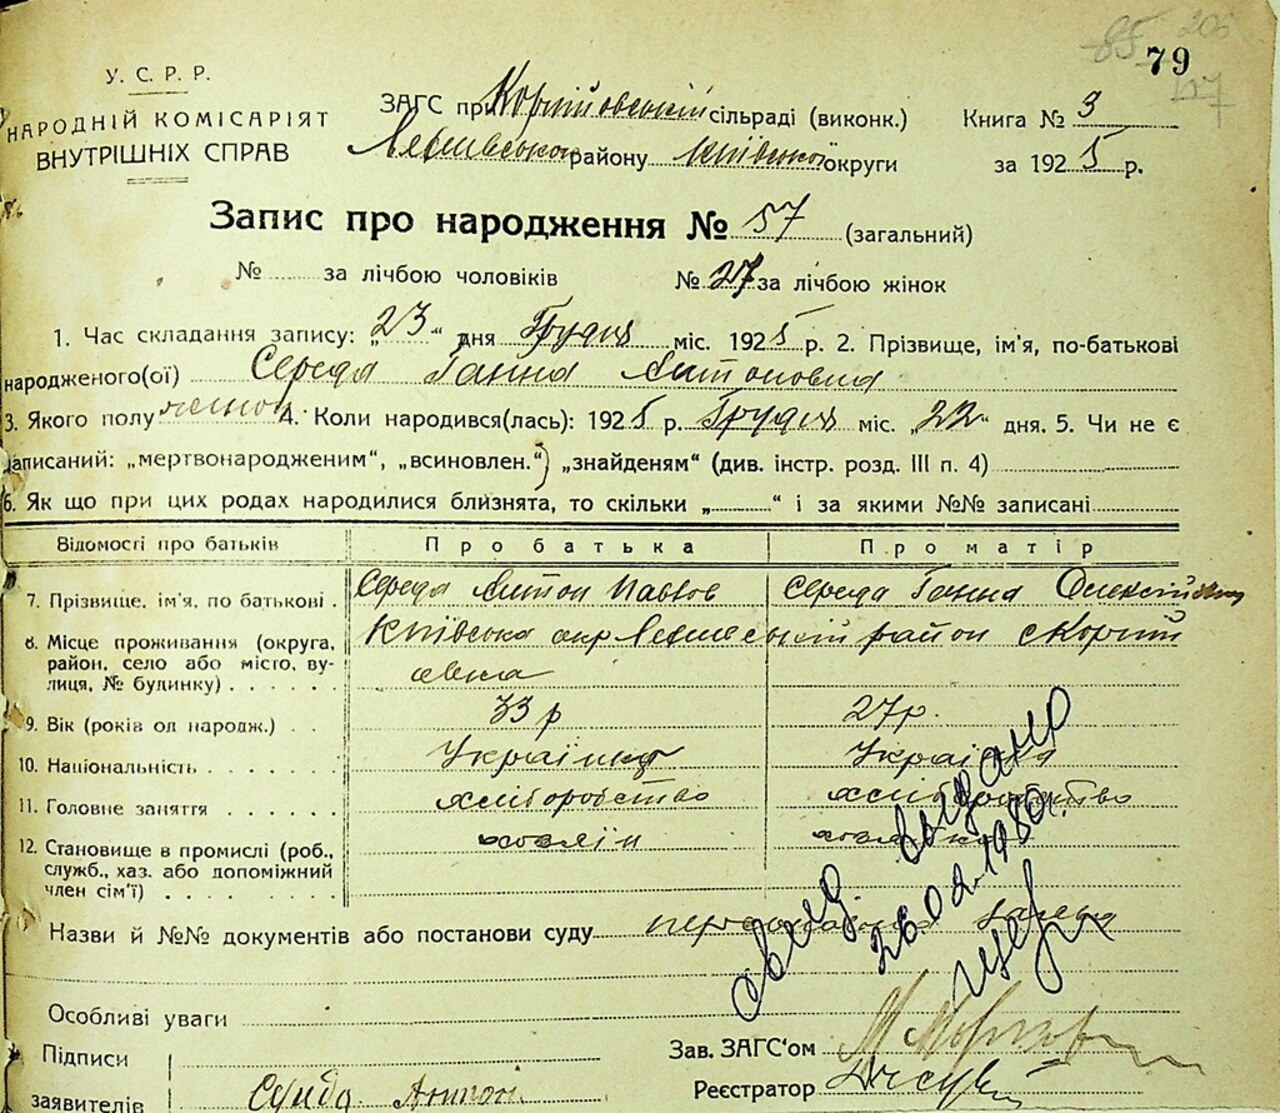 79
У. С. Р. Р.
НАРОДНІЙ КОМІСАРІЯТ
ВНУТРІШНІХ СПРАВ
ЗАГС при Корніївській сільраді (виконк.)
району Київської округи
Книга № 3
за 1925 р.
Запис про народження № 57 (загальний)
№ ........ за лічбою чоловіків № 27 за лічбою жінок
1. Час складання запису: „23“ дня Грудня міс. 1925 р. 2. Прізвище, ім'я, по-батькові
народженого(ої) Середа Ганна Антоновна
3. Якого полу женск 4. Коли народився(лась): 1925 р. Грудня міс. „22“ дня. 5. Чи не є
записаний: „мертвонародженим“, „всиновлен.“, „знайденям“ (див. інстр. розд. III п. 4)
6. Як що при цих родах народилися близнята, то скільки „........“ і за якими №№ записані
Відомості про батьків Про батька Про матір
7. Прізвище, ім'я, по батькові . Середа Антон Павлов Середа Ганна Олексійовна
8. Місце проживання (округа, Київська окр район с Корній
район, село або місто, ву- овка
лиця, № будинку) . . . . . .
9. Вік (років од народж.) . . 33 р 27 р.
10. Національність . . . . . . . Українця Українка
11. Головне заняття . . . . . . . хліборобство хліборобство
12. Становище в промислі (роб., хозяїн хозяйка
служб., хаз. або допоміжний
член сім'ї) . . . . . . . .
Назви й №№ документів або постанови суду
Особливі уваги
свид выдано
26 02 1980г.
Підписи
заявителів Середа Антон
Зав. ЗАГС'ом
Реєстратор